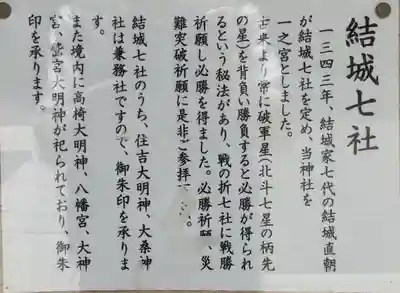 結城七社
一三四三年、結城家七代の結城直朝
が結城七社を定め、当神社を
一之宮としました。
古来より常に破軍星(北斗七星の柄先
の星)を背負い勝負すると必勝が得られ
るという秘法があり、戦の折七社に戦勝
祈願し必勝を得ました。必勝祈願、災
難突破祈願に是非ご参拝
結城七社のうち、住吉大明神、大桑神
社は兼務社ですので、御朱印を承りま
す。
また境内に高椅大明神、八幡宮、大神
宮、鷲宮大明神が祀られており、御朱
印を承ります。